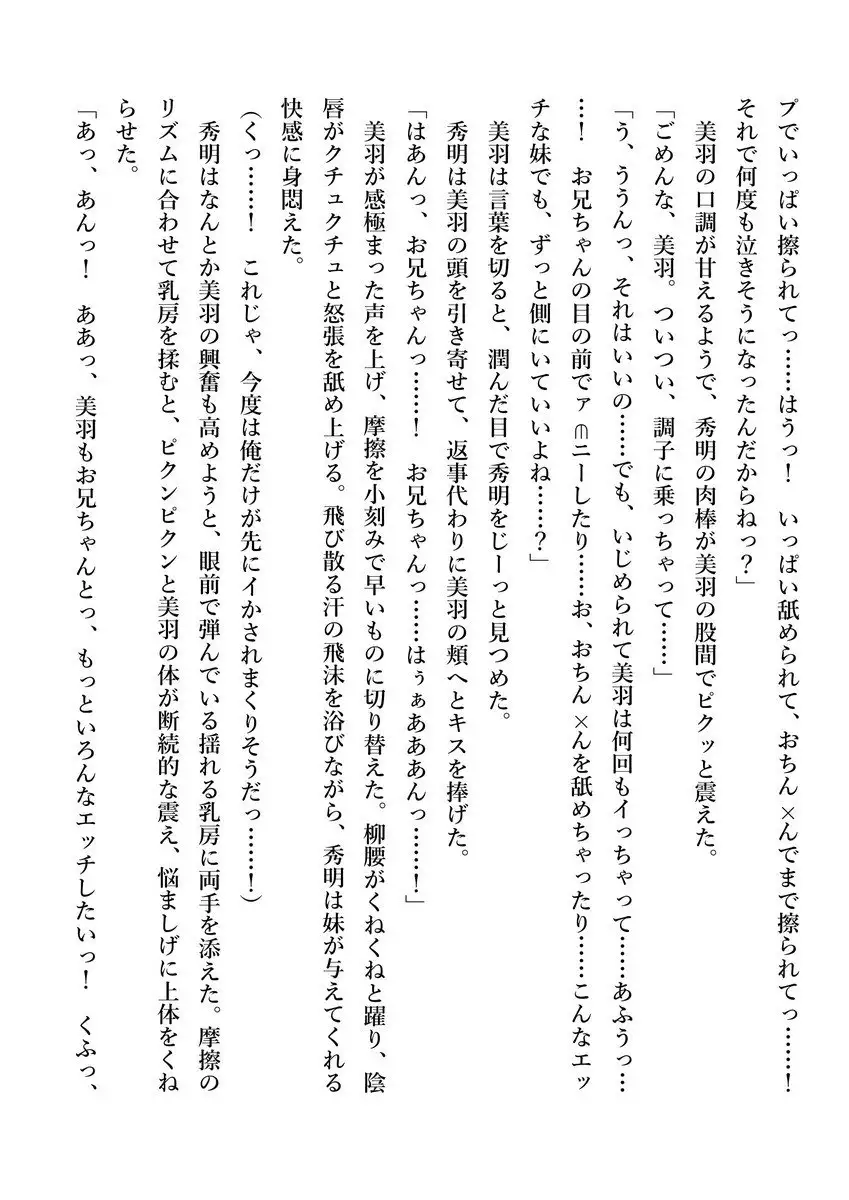 プでいっぱい擦られてっ……はうっ！　いっぱい舐められて、おちん×んでまで擦られてっ……！
それで何度も泣きそうになったんだからねっ？」
　美羽の口調が甘えるようで、秀明の肉棒が美羽の股間でピクッと震えた。
「ごめんな、美羽。ついつい、調子に乗っちゃって……」
「う、ううんっ、それはいいの……でも、いじめられて美羽は何回もイっちゃって……あふうっ…
…！　お兄ちゃんの目の前でァ⋒ニーしたり……お、おちん×んを舐めちゃったり……こんなエッ
チな妹でも、ずっと側にいていいよね……？」
　美羽は言葉を切ると、潤んだ目で秀明をじーっと見つめた。
　秀明は美羽の頭を引き寄せて、返事代わりに美羽の頬へとキスを捧げた。
「はあんっ、お兄ちゃんっ……！　お兄ちゃんっ……はぅぁあああんっ……！」
　美羽が感極まった声を上げ、摩擦を小刻みで早いものに切り替えた。柳腰がくねくねと躍り、陰
唇がクチュクチュと怒張を舐め上げる。飛び散る汗の飛沫を浴びながら、秀明は妹が与えてくれる
快感に身悶えた。
（くっ……！　これじゃ、今度は俺だけが先にイかされまくりそうだっ……！）
　秀明はなんとか美羽の興奮も高めようと、眼前で弾んでいる揺れる乳房に両手を添えた。摩擦の
リズムに合わせて乳房を揉むと、ピクンピクンと美羽の体が断続的な震え、悩ましげに上体をくね
らせた。
「あっ、あんっ！　ああっ、美羽もお兄ちゃんとっ、もっといろんなエッチしたいっ！　くふっ、